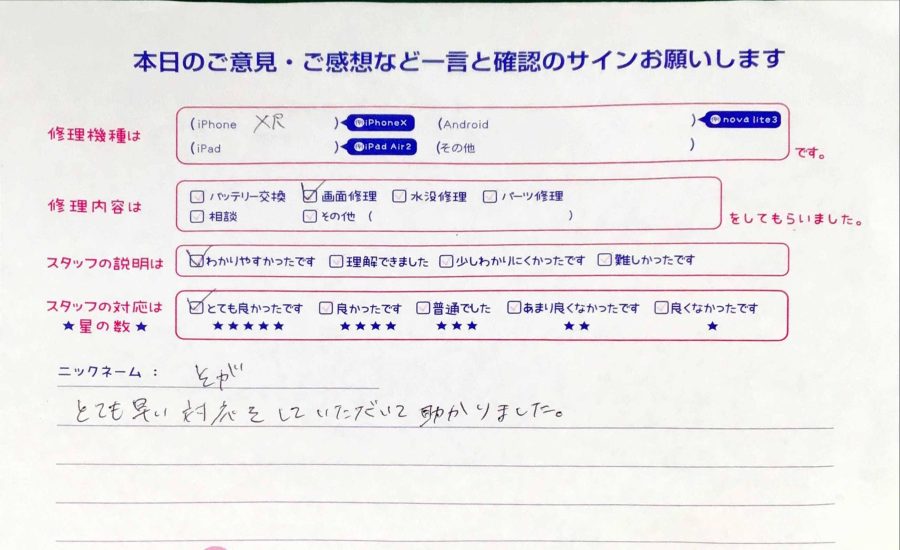 本日のご意見・ご感想など一言と確認のサインお願いします
修理機種は (iPhone XR ) 例iPhoneX (Android ) 例nova lite3
(iPad ) 例iPad Air2 (その他 ) です。
修理内容は バッテリー交換 画面修理 水没修理 パーツ修理
相談 その他 ( ) をしてもらいました。
スタッフの説明は わかりやすかったです 理解できました 少しわかりにくかったです 難しかったです
スタッフの対応は とても良かったです 良かったです 普通でした あまり良くなかったです 良くなかったです
★星の数★ ★★★★★ ★★★★ ★★★ ★★ ★
ニックネーム: そが
とても早い対応をしていただいて助かりました。